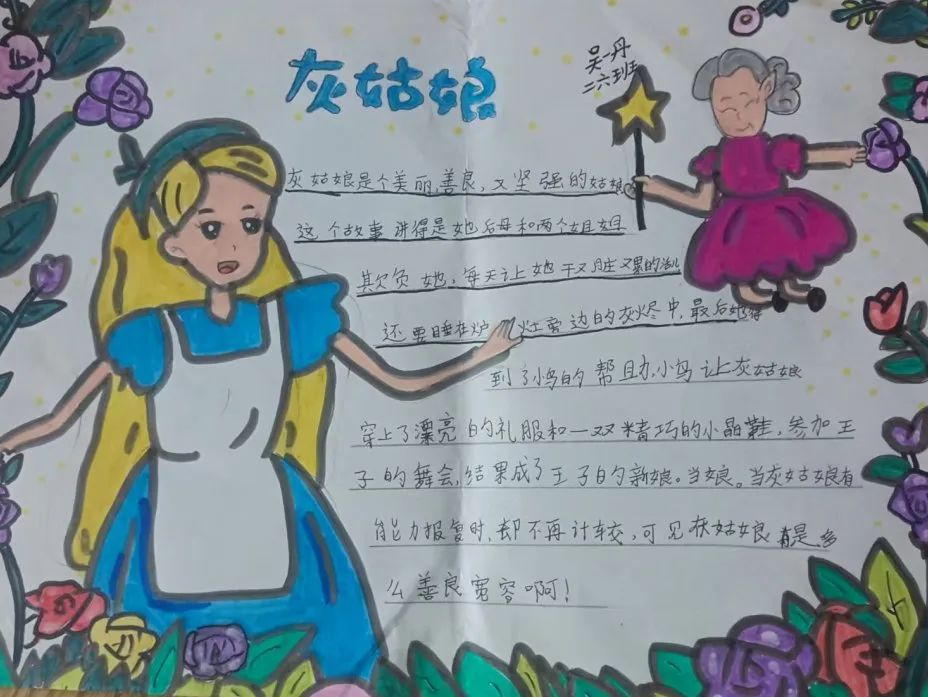 灰姑娘
吴一丹
二六班
灰姑娘是个美丽,善良,又坚强的姑娘
这个故事讲得是她后母和两个姐姐
欺负她,每天让她干又脏又累的活儿
还要睡在炉灶旁边的灰烬中,最后她得
到了小鸟的帮助,小鸟让灰姑娘
穿上了漂亮的礼服和一双精巧的小晶鞋,参加王
子的舞会,结果成了王子的新娘。当娘。当灰姑娘有
能力报复时,却不再计较,可见灰姑娘是多
么善良宽容啊!